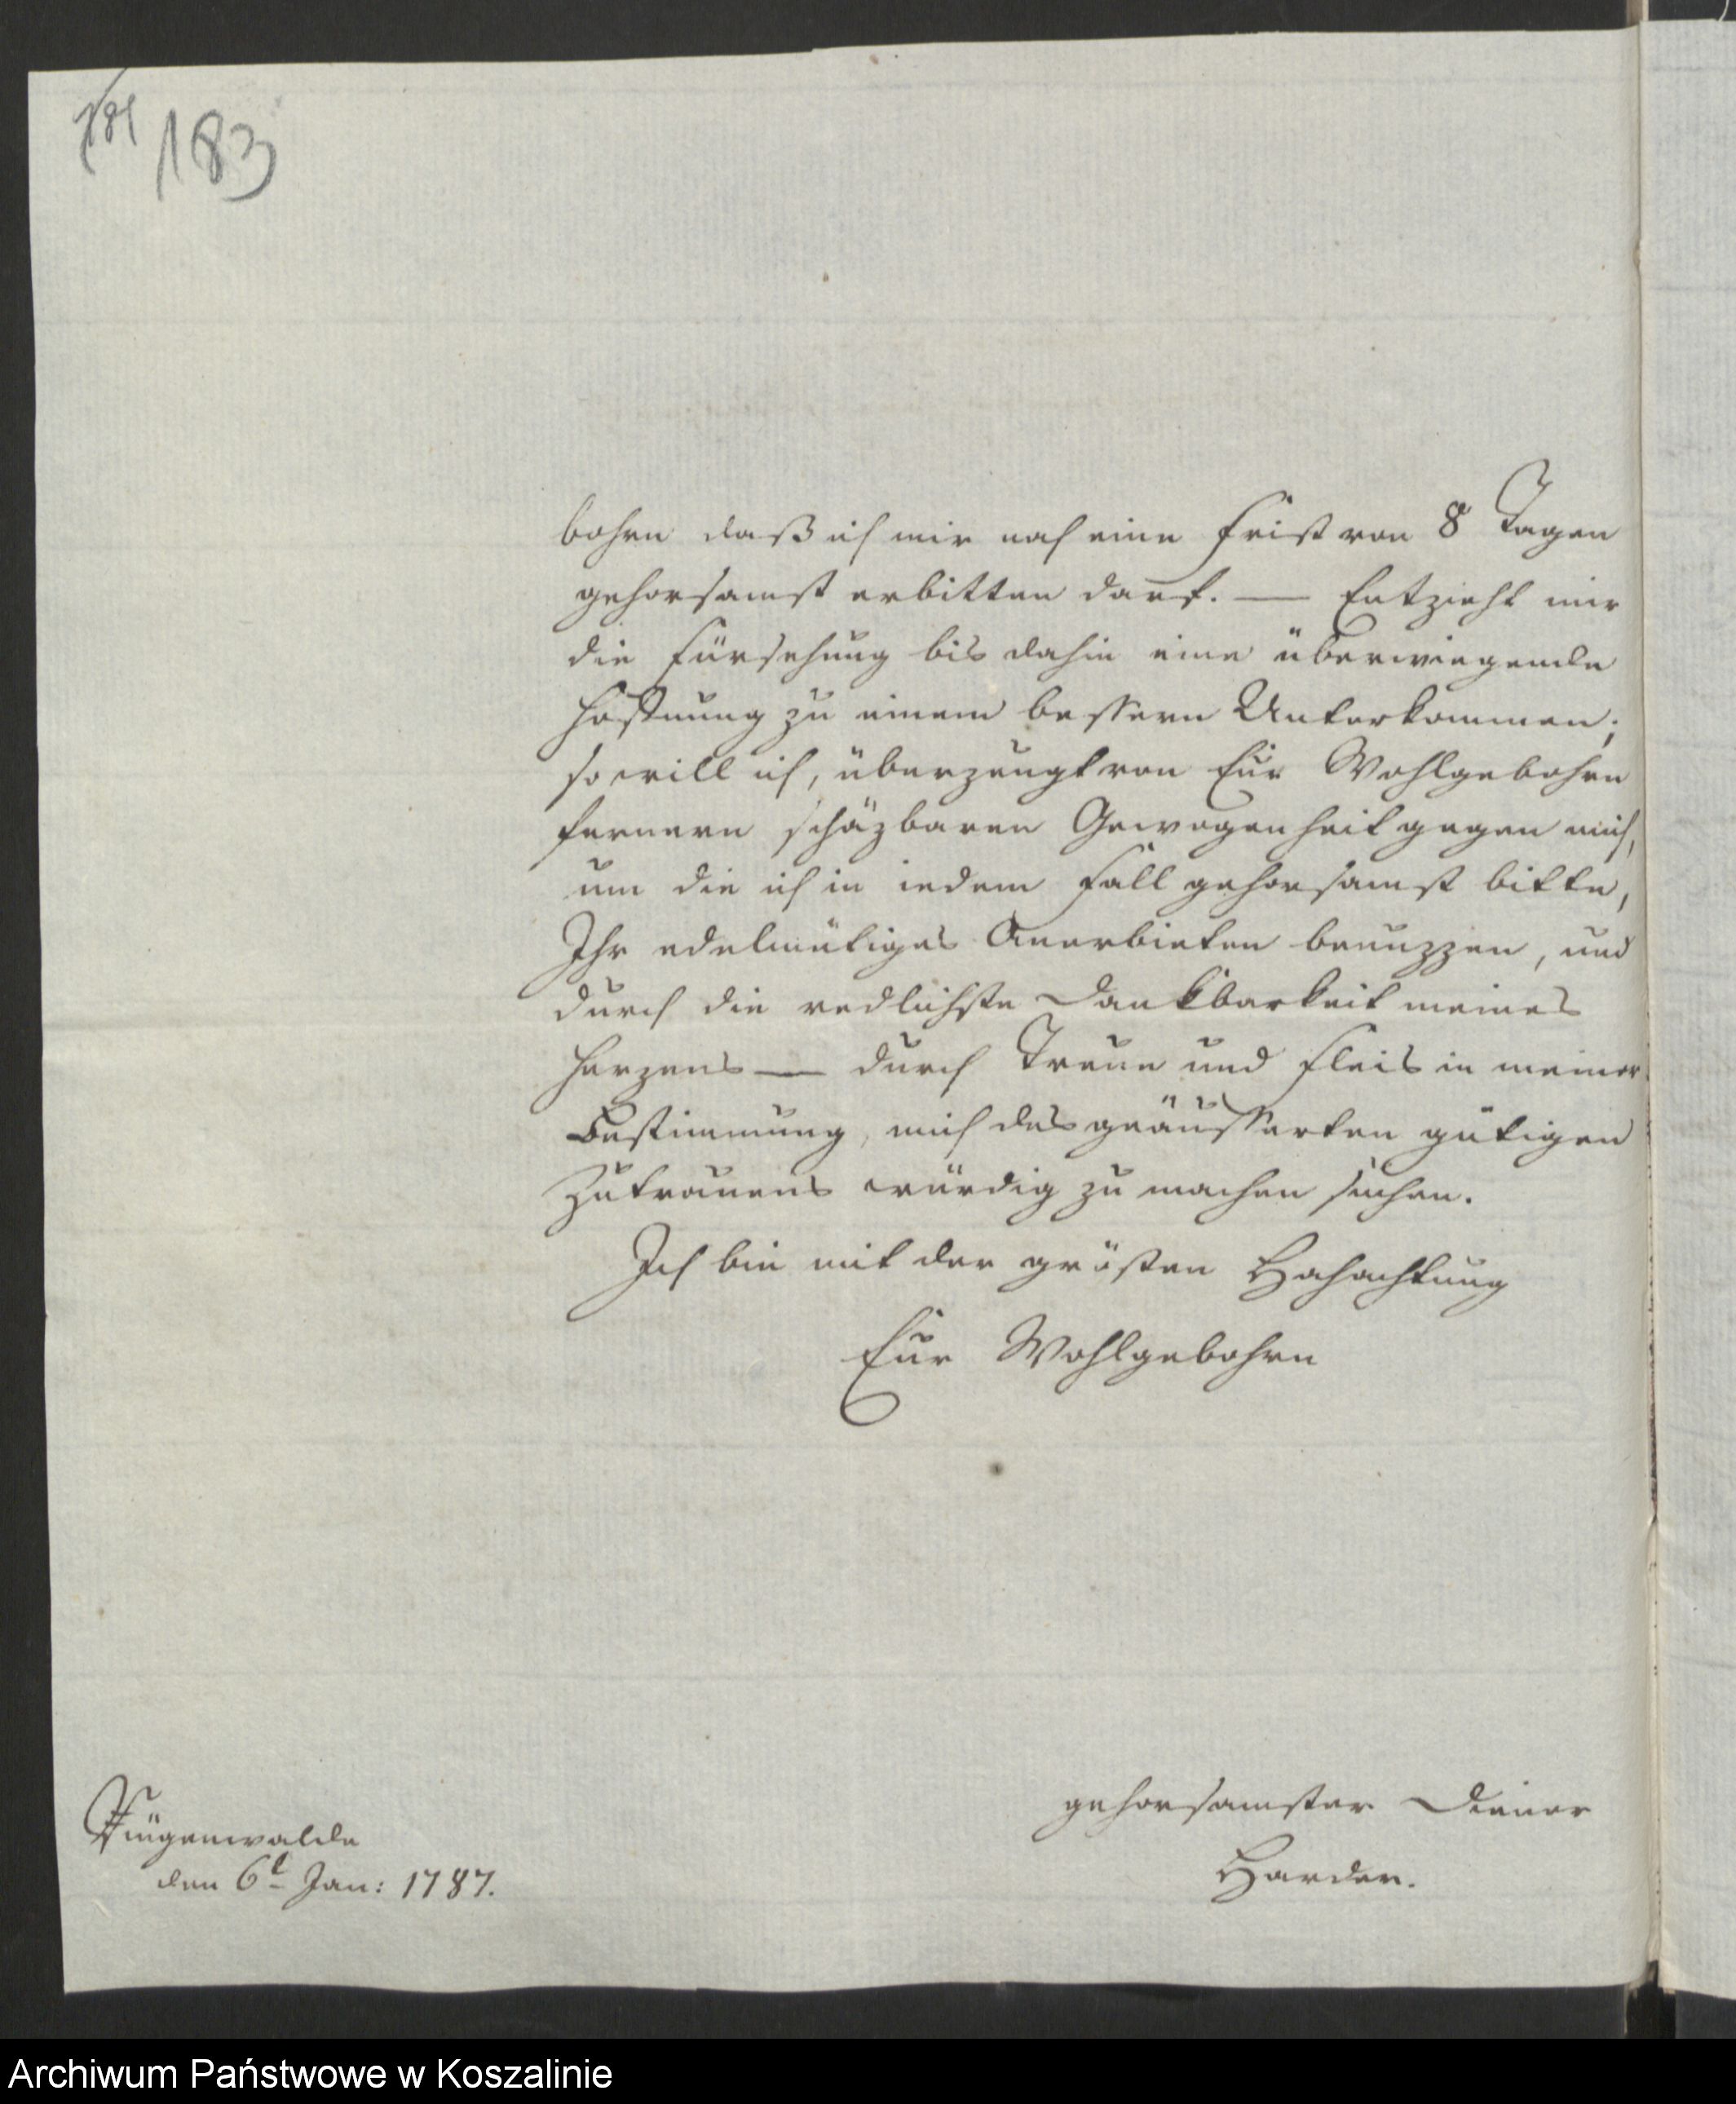 181 183
bohrn daß ich mir noch eine Frist von 8 Tagen
gehorsamst erbitten darf. — Entzieht mir
die Fürsehung bis dahin eine überwiegende
Hoffnung zu einem bessern Unterkommen;
so will ich, überzeugt von Eur Wohlgebohrn
fernern schäzbaren Gewogenheit gegen mich,
um die ich in iedem Fall gehorsamst bitte,
Ihr edelmütiges Anerbieten benuzzen, und
durch die redlichste Dankbarkeit meines
Herzens — durch Treue und Fleis in meiner
Bestimmung, mich des geäusserten gütigen
Zutrauens würdig zu machen suchen.
Ich bin mit der grösten Hochachtung
Eur Wohlgebohrn
gehorsamster Diener
Harder.
Rügenwalde
den 6t Jan: 1787.
Archiwum Państwowe w Koszalinie